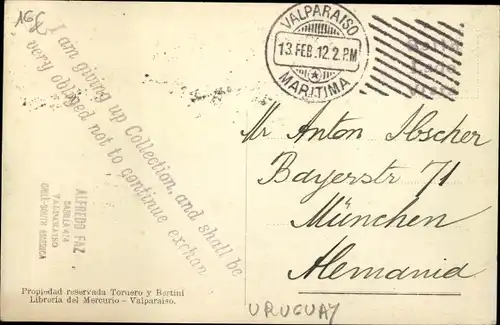 16G
I am giving up Collection, and shall be
very obliged not to continue exchan
ALFREDO FAZ
CASILLA 474
VALPARAISO
CHILE-SOUTH AMERICA
Propiedad reservada Tornero y Bertini
Librería del Mercurio - Valparaiso.
VALPARAISO
13.FEB.12.2.PM
MARITIMA
Mr Anton Ibscher
Bayerstr 71
München
Alemania
URUGUAY